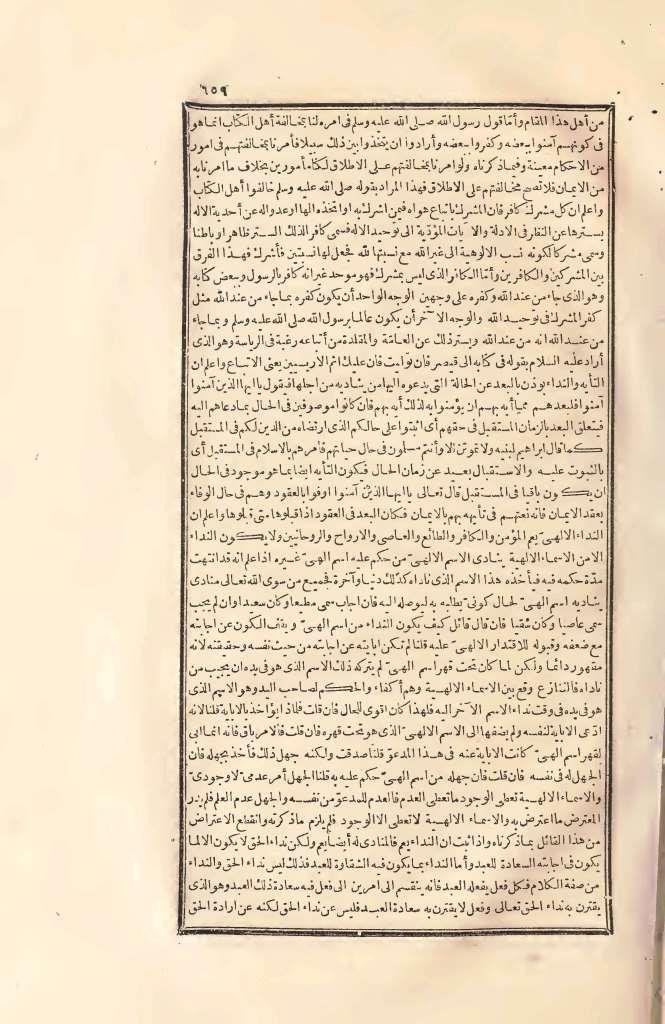 ٦٥٩
من أهل هذا المقام وأما قول رسول الله صلى الله عليه وسلم في امره لنا بمخالفة أهل الكتاب انما هو
في كونهم آمنوا ببعضه وكفروا ببعضه وأرادوا ان يتخذوا بين ذلك سبيلا فأمرنا بمخالفتهم في امور
من الاحكام معينة وفيما ذكرناه ولو أمرنا بمخالفتهم على الاطلاق لكنا مأمورين بخلاف ما امرنا به
من الايمان فلا تصح مخالفتهم على الاطلاق فهذا المراد بقوله صلى الله عليه وسلم خالفوا أهل الكتاب
واعلم ان كل مشرك كافر فان المشرك باتباع هواه فيمن اشرك به واتخذه الها وعدوله عن أحدية الاله
يسترها عن النظر في الادلة والآيات المؤدّية الى توحيد الاله فسمى كافر الذلك الستر ظاهرا وباطنا
وسمى مشركا لكونه نسب الالوهية الى غير الله مع نسبتها لله فجعل لها نسبتين فأشرك فهذا الفرق
بين المشركين والكافرين وأما الكافر الذي ليس بمشرك فهو موحد غير انه كافر بالرسول وببعض كتابه
وهو الذي جاء من عند الله وكفره على وجهين الوجه الواحد أن يكون كفره بما جاء من عند الله مثل
كفر المشرك في توحيد الله والوجه الآخر أن يكون عالما برسول الله صلى الله عليه وسلم وبما جاء
من عند الله انه من عند الله ويستر ذلك عن العامّة والمقلدة من أتباعه رغبة في الرياسة وهو الذي
أراد عليه السلام بقوله في كتابه الى قيصر فان توليت فان عليك اثم الاريسيين يعني الاتباع واعلم ان
التأيه والنداء يؤذن بالبعد عن الحالة التي يدعوه اليها من يناديه من اجلها فيقول يا ايها الذين آمنوا
آمنوا فلبعدهم مما أيه بهم ان يؤمنوا به لذلك أيه بهم فان كانوا موصوفين في الحال بما دعاهم اليه
فيتعلق البعد بالزمان المستقبل في حقهم أي اثبتوا على حالكم الذي ارتضاه من الدين لكم في المستقبل
كما قال ابراهيم لبنيه ولا تموتنّ الا وأنتم مسلمون في حال حياتهم فأمرهم بالاسلام في المستقبل أي
بالثبوت عليه والاستقبال بعيد عن زمان الحال فيكون التأيه ايضا بما هو موجود في الحال
ان يكون باقيا في المستقبل قال تعالى يا ايها الذين آمنوا اوفوا بالعقود وهم في حال الوفاء
بعقد الايمان فانه نعتهم في تأيهه بهم بالايمان فكان البعد في العقود اذا قبلوها متى قبلوها واعلم ان
النداء الالهيّ يعم المؤمن والكافر والطائع والعاصي والارواح والروحانيين ولا يكون النداء
الا من الاسماء الالهية ينادى الاسم الالهيّ من حكم عليه اسم الهيّ غيره اذا علم انه قد انتهت
مدّة حكمه فيه فيأخذه هذا الاسم الذي ناداه كذلك دنيا وآخرة فجميع من سوى الله تعالى منادى
يناديه اسم الهيّ لحال كونيّ يطلبه به ليوصله اليه فان اجاب سمى مطيعا وكان سعيدا وان لم يجب
سمى عاصيا وكان شقيا فان قال قائل كيف يكون النداء من اسم الهيّ ويقف الكون عن اجابته
مع ضعفه وقبوله للاقتدار الالهيّ عليه قلنا لم تكن ابايته عن اجابته من حيث نفسه وحقيقته لانه
مقهور دائما ولكن لما كان تحت قهر اسم الهيّ لم يتركه ذلك الاسم الذي هو في يده ان يجيب من
ناداه فالتنازع وقع بين الاسماء الالهية وهم أكفاء والحكم لصاحب اليد وهو الاسم الذي
هو في يده في وقت نداء الاسم الآخر اليه فلهذا كان اقوى للحال فان قلت فلماذا يؤاخذ بالاباية قلنا لانه
ادّعى الاباية لنفسه ولم يضفها الى الاسم الالهيّ الذي هو تحت قهره فان قلت فالامر باق فانه انما ابى
لقهر اسم الهيّ كانت الاباية عنه في هذا المدعوّ قلنا صدقت ولكنه جهل ذلك فأخذ بجهله فان
الجهل له في نفسه فان قلت فان جهله من اسم الهيّ حكم عليه به قلنا الجهل أمر عدميّ لا وجوديّ
والاسماء الالهية تعطى الوجود ما تعطى العدم فالعدم للمدعوّ من نفسه والجهل عدم العلم فلم يدر
المعترض ما اعترض به والاسماء الالهية لا تعطى الا الوجود فلم يلزم ما ذكرته وانقطع الاعتراض
من هذا القائل بما ذكرناه واذا ثبت ان النداء يعم فالمنادى له أيضا يعم ولكن نداء الحق لا يكون الا لما
يكون في اجابته السعادة للعبد وأما النداء بما يكون فيه الشقاوة للعبد فذلك ليس نداء الحق والنداء
من صفة الكلام فكل فعل يفعله العبد فانه ينقسم الى امرين الى فعل فيه سعادة ذلك العبد وهو الذي
يقترن به نداء الحق تعالى وفعل لا يقترن به سعادة العبد فليس عن نداء الحق لكنه عن ارادة الحق